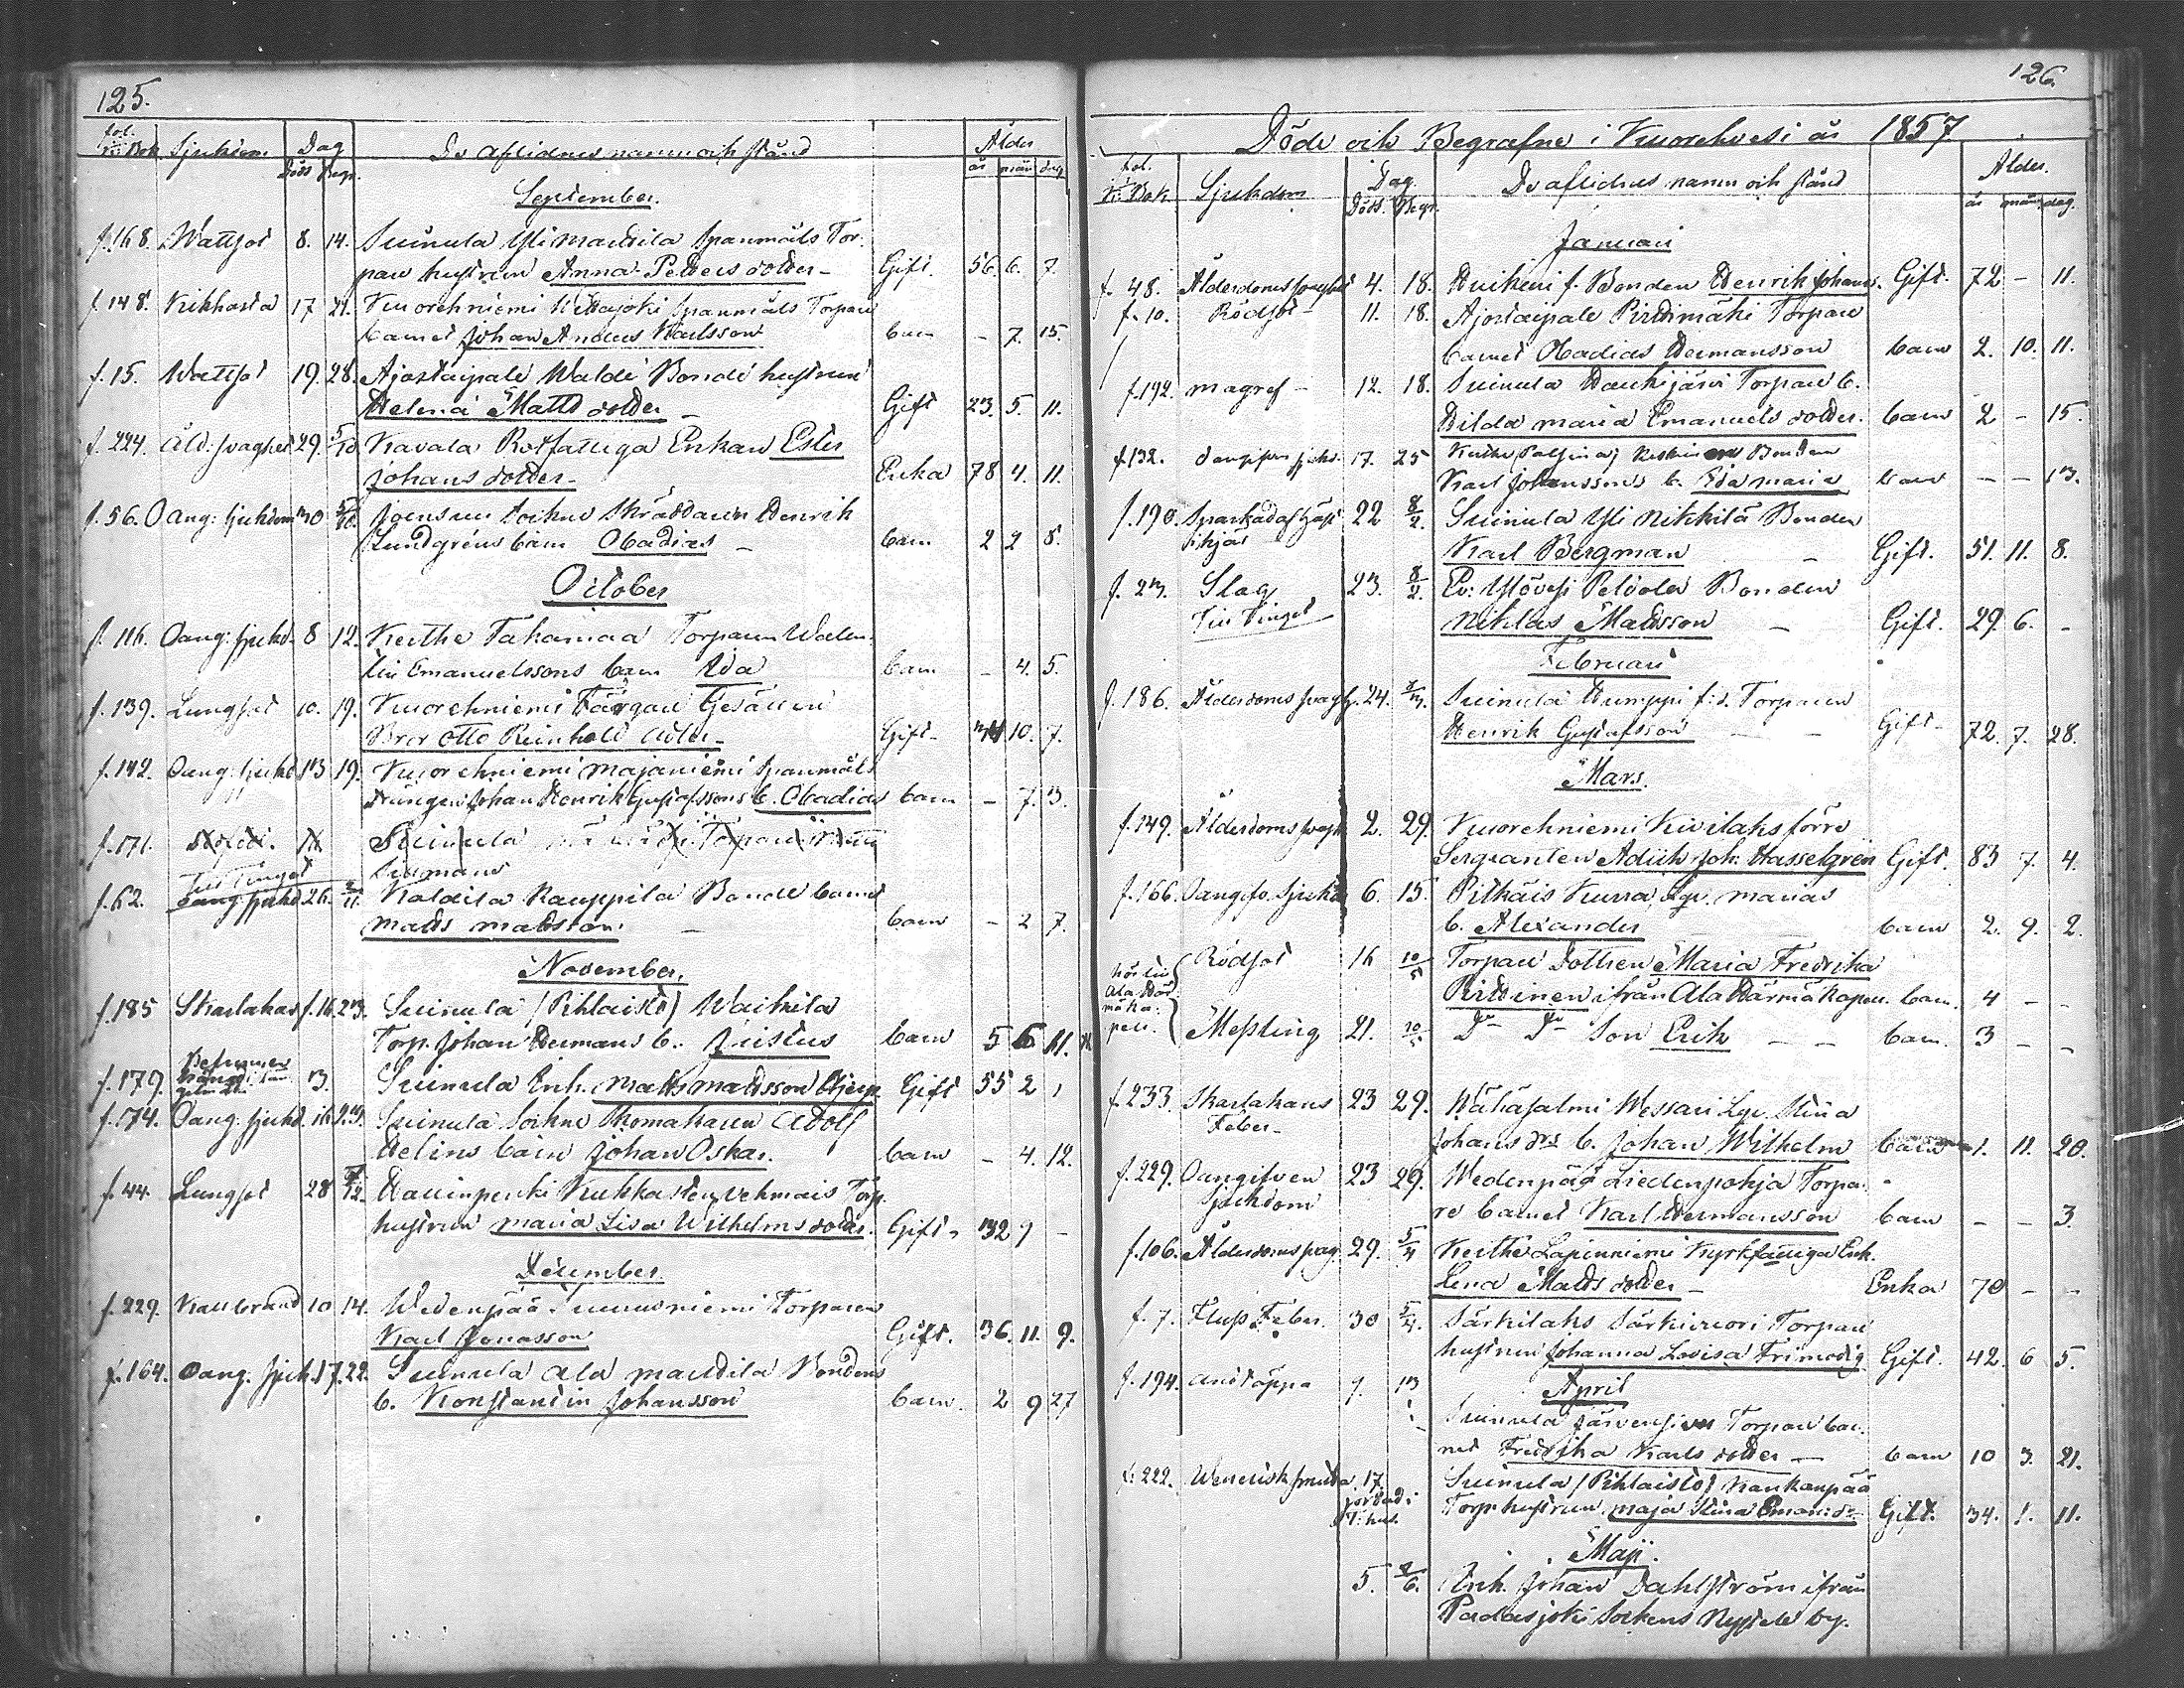 125.
fol. K: Bok Sjukdom Dag Döds Begr. De aflidnes namn och stånd Ålder år mån dag
September.
f. 168. Wattsot 8. 14. Suinula Yli Mattila Spanmåls Tor-
pare hustrun Anna Petters dotter - Gift. 56. 6. 7.
f. 148. Kikhosta 17 21. Kuorehniemi Spanmåls Torpare
barnet Johan Anders Karlsson barn - 7. 15.
f. 15. Wattsot 19. 28. Ajostaipale Waldé Bonde hustrun
Helena Matts dotter - Gift 23. 5. 11.
f. 224. Åld. svaghet 29. 5/10 Kavala Rotfattiga Enkan Ester
Johans dotter - Enka 78 4. 11.
f. 56. Oang: sjukdom 30 5/10. Joensuu Sockne Skräddaren Henrik
Lundgréns barn Obadias - barn 2 2 8.
October
f. 116. Oang: sjukd. 8 12. Keithe Tahamaa Torparen Walen-
tin Emanuelssons barn Ida barn - 4. 5.
f. 139. Lungsot 10. 19. Kuorehniemi Färgare Gesällen
Bror Otto Reinhold Adler - Gift - 34 10. 7.
f. 142. Oang: sjukd 13 19. Kuorehniemi Majaniemi Spanmåls
Drängen Johan Henrik Gustafssons b. Obadias barn - 7. 3.
f. 171. Suinula
f. 62. Oang: sjukd 26. 2/11 Kaldila Kauppila Bonde barnet
Matts Mattsson. - barn - 2 7.
November.
f. 185 Skarlakas f. 16. 23. Suinula (Pihlaisto) Waihila
Torp. Johan Hermans b. Justus barn 5 6 11.
f. 179. 3. Suinula Enk. Matts Mattsson Gift 55 2 1
f. 174. Oang: sjukd. 16 23. Suinula Sockne Skomakaren Adolf
Helins barn Johan Oskar. barn - 4. 12.
f. 44. Lungsot 28 7/12. Hauinpenki Kukkasten Vehmais Torp.
hustrun Maria Lisa Wilhelms dotter. Gift - 32 9 -
December.
f. 229. Kallbrand 10. 14. Wedenpää Torparen
Karl Jonasson Gift. 36. 11. 9.
f. 164. Oang. sjuk. 17. 22. Suinula Ala Mattila Bondens
b. Konstantin Johansson barn. 2 9 27
126.
Döde och Begrafne i Kuorehvesi år 1857
fol. K: Bok. Sjukdom Dag. Döds. Begr. De aflidnes namn och stånd Ålder. år mån. dag.
Januari
f. 48. Ålderdomssvaghet 4. 18. f. Bonden Henrik Johans. Gift. 72 - 11.
f. 10. Rödsot - 11. 18. Ajostaipale Pirttimäki Torpare
barnet Obadias Hermansson barn 2. 10. 11.
f. 192. Magref - 12. 18. Suinula Haukijärvi Torpare b.
Hilda Maria Emanuels dotter. barn 2 - 15.
f. 132. 17. 25 Keithe Bonden
Karl Johanssons b. Ida Maria barn - - 13.
f. 190. 22 8/2. Suinula Yli Nikkilä Bonden
Karl Bergman - Gift. 51. 11. 8.
f. 23. Slag 23. 8/2. Ylövesi Peldola Bonden
Till Tinget Niklas Mattsson - Gift. 29. 6. -
Februari
f. 186. Ålderdoms svagh. 24. Suinula Humppi f: d. Torparen
Henrik Gustafsson - - Gift - 72. 7. 28.
Mars.
f. 149. Ålderdoms svagh 2. 29. Kuorehniemi Kivilaks förre
Sergeanten Joh: Hasselgrén Gift. 83 7 4.
f. 166. Oangifv. sjukd 6. 15. Pitkäis Kurra Lge. Marias
b. Alexander barn 2. 9. 2.
Rödsot 16 10/5 Torpare Dottren Maria Fredrika
Pirttinen ifrån Ala Härmä Kapell. barn. 4 - -
Messling 21. 10/5. Do Do Son Erik - - barn. 3 - -
f. 233. Skarlakans Feber - 23 29. Wähäsalmi Wessari Lge. Stina
Johans drs b. Johan Wilhelm barn 1. 11. 20.
f. 229. Oangifven sjukdom 23 29. Wedenpää Liedenpohja Torpa-
re barnet Karl Hermansson barn - - 3.
f. 106. Ålderdoms svag. 29. 5/4 Keithe Lapinniemi Kyrkfattiga Enk.
Lena Matts dotter - Enka 70 - -
f. 7. Feber. 30 5/4. Särkilaks Särkivuori Torpare
hustrun Johanna Lovisa Frimodig Gift. 42. 6 5.
April
f. 194. Andtäppa 7. 13 Suinula Torpare bar-
net Fredrika Karls dotter - barn 10 3. 21.
f. 222. Wenerisk smitta. 17. Suinula (Pihlaisto) Kaukanpää
Torp. hustrun Maja Stina Eman: dr Gift. 34. 1. 11.
Maji.
5. 2/6. Enk. Johan Dahlström ifrån
Padasjoki Sockens Nystele by.